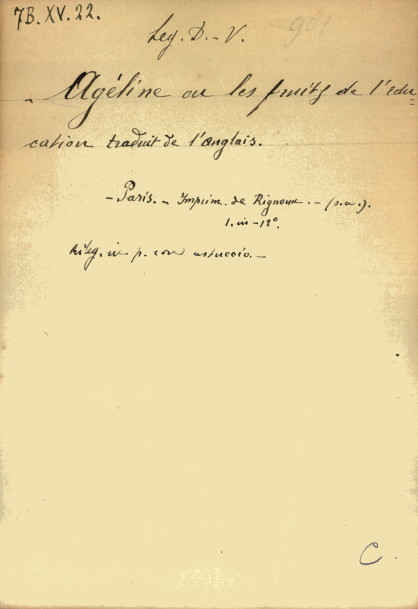 7B. XV. 22.
Leg. D. - V.
- Agéline ou les fruits de l'édu=
cation traduit de l'anglais.
- Paris. - Imprim. de Rignoux. - (s. a.).
1. in-12°.
leg. in p. con astuccio. -
C.